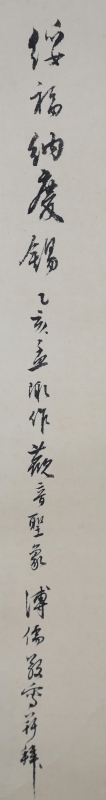 綏福納慶錫乙亥孟陬作觀音聖象溥儒敬寫并拜